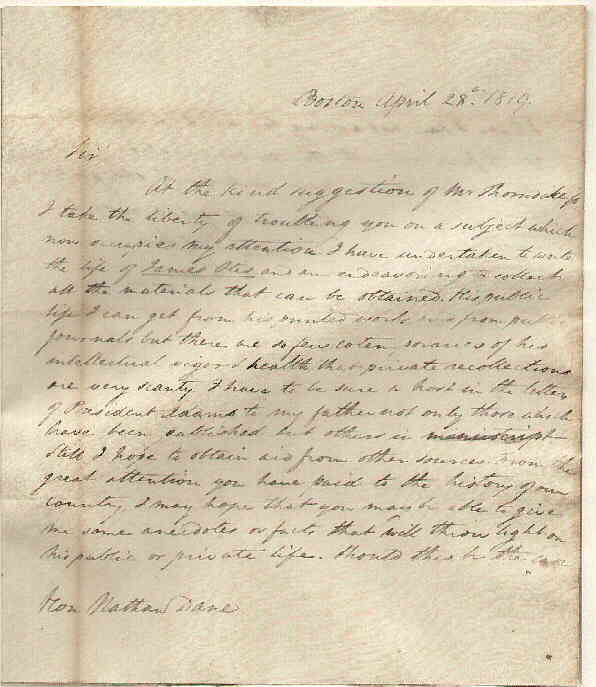 Boston April 28th 1819.
Sir
At the kind suggestion of Mr
I take the liberty of troubling you on a subject which
now occupies my attention. I have undertaken to write
the life of James Otis, and am endeavoring to collect
all the materials that can be obtained. His public
life I can get from his printed works and from pub
journals but there are so few cotemporaries of his
intellectual vigor & health that private recollections
are very scanty I have to be sure a host in the letters
of President Adams to my father not only those which
have been published but others in manuscript
Still I hope to obtain aid from other sources. From the
great attention you have paid to the history of our
country, I may hope that you may be able to give
me some anecdotes or facts that will throw light on
his public or private life. Should this be the case
Hon Nathan Dane